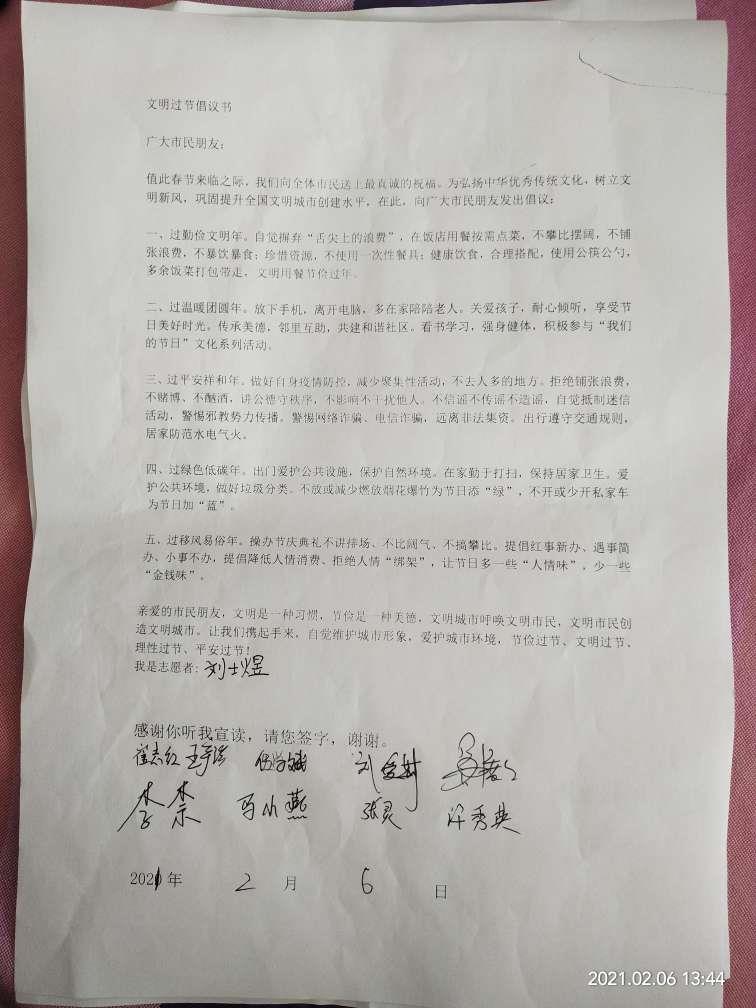 文明过节倡议书
广大市民朋友：
值此春节来临之际，我们向全体市民送上最真诚的祝福。为弘扬中华优秀传统文化，树立文
明新风，巩固提升全国文明城市创建水平，在此，向广大市民朋友发出倡议：
一、过勤俭文明年。自觉摒弃“舌尖上的浪费”，在饭店用餐按需点菜，不攀比摆阔，不铺
张浪费，不暴饮暴食；珍惜资源，不使用一次性餐具；健康饮食，合理搭配，使用公筷公勺，
多余饭菜打包带走，文明用餐节俭过年。
二、过温暖团圆年。放下手机，离开电脑，多在家陪陪老人。关爱孩子，耐心倾听，享受节
日美好时光。传承美德，邻里互助，共建和谐社区。看书学习，强身健体，积极参与“我们
的节日”文化系列活动。
三、过平安祥和年。做好自身疫情防控，减少聚集性活动，不去人多的地方。拒绝铺张浪费，
不赌博、不酗酒，讲公德守秩序，不影响不干扰他人。不信谣不传谣不造谣，自觉抵制迷信
活动，警惕邪教势力传播。警惕网络诈骗、电信诈骗，远离非法集资。出行遵守交通规则，
居家防范水电气火。
四、过绿色低碳年。出门爱护公共设施，保护自然环境。在家勤于打扫，保持居家卫生。爱
护公共环境，做好垃圾分类。不放或减少燃放烟花爆竹为节日添“绿”，不开或少开私家车
为节日加“蓝”。
五、过移风易俗年。操办节庆典礼不讲排场、不比阔气、不搞攀比。提倡红事新办、遇事简
办、小事不办，提倡降低人情消费、拒绝人情“绑架”，让节日多一些“人情味”，少一些
“金钱味”。
亲爱的市民朋友，文明是一种习惯，节俭是一种美德，文明城市呼唤文明市民，文明市民创
造文明城市。让我们携起手来，自觉维护城市形象，爱护城市环境，节俭过节、文明过节、
理性过节、平安过节！
我是志愿者：刘士煜
感谢你听我宣读，请您签字，谢谢。
崔志红
李崇 马小燕 张灵 许秀英
2021年 2 月 6 日
2021.02.06 13:44